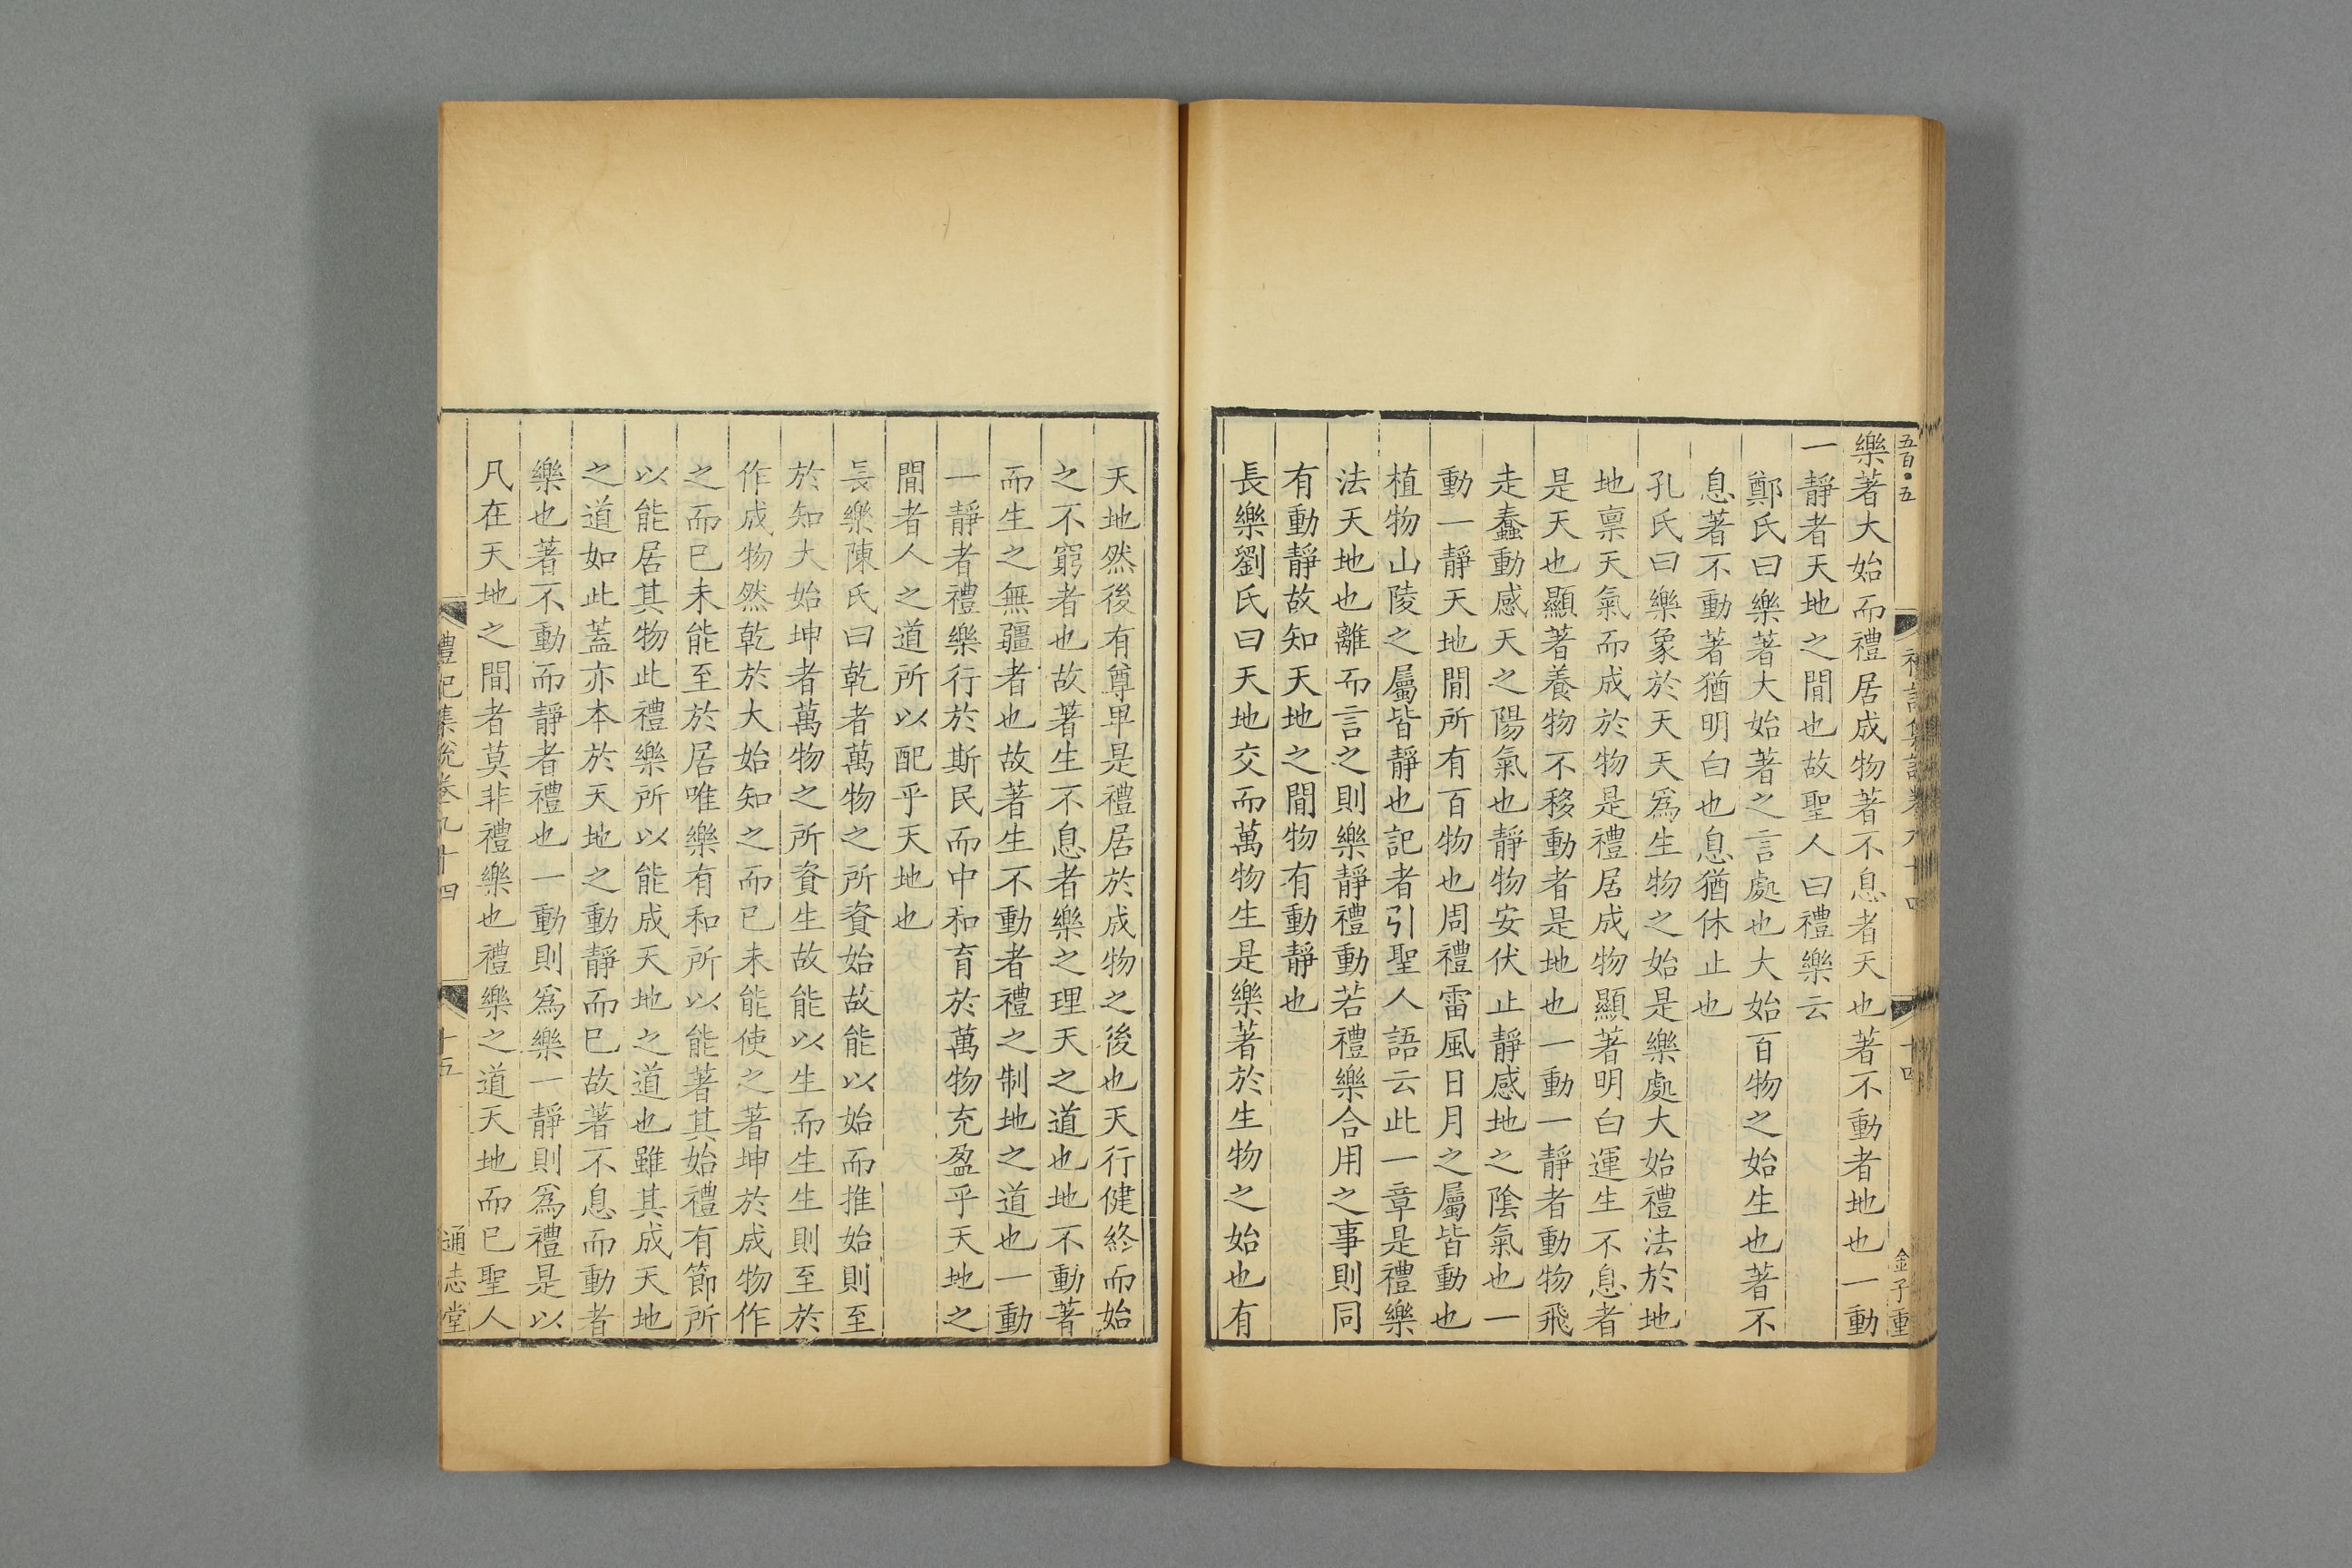 五百〇五
金子重
樂著大始而禮居成物著不息者天也著不動者地也一動
一靜者天地之間也故聖人曰禮樂云
鄭氏曰樂著大始著之言處也大始百物之始生也著不
息著不動著猶明白也息猶休止也
孔氏曰樂象於天天爲生物之始是樂處大始禮法於地
地禀天氣而成於物是禮居成物顯著明白運生不息者
是天也顯著養物不移動者是地也一動一靜者動物飛
走蠢動感天之陽氣也靜物安伏止靜感地之隂氣也一
動一靜天地間所有百物也周禮雷風日月之屬皆動也
植物山陵之屬皆靜也記者引聖人語云此一章是禮樂
法天地也離而言之則樂靜禮動若禮樂合用之事則同
有動靜故知天地之間物有動靜也
長樂劉氏曰天地交而萬物生是樂著於生物之始也有
天地然後有尊卑是禮居於成物之後也天行健終而始
之不窮者也故著生不息者樂之理天之道也地不動著
而生之無疆者也故著生不動者禮之制地之道也一動
一靜者禮樂行於斯民而中和育於萬物充盈乎天地之
間者人之道所以配乎天地也
長樂陳氏曰乾者萬物之所資始故能以始而推始則至
於知大始坤者萬物之所資生故能以生而生生則至於
作成物然乾於大始知之而已未能使之著坤於成物作
之而已未能至於居唯樂有和所以能著其始禮有節所
以能居其物此禮樂所以能成天地之道也雖其成天地
之道如此蓋亦本於天地之動靜而已故著不息而動者
樂也著不動而靜者禮也一動則爲樂一靜則爲禮是以
凡在天地之間者莫非禮樂也禮樂之道天地而已聖人
禮記集說卷九十四
十五
通志堂